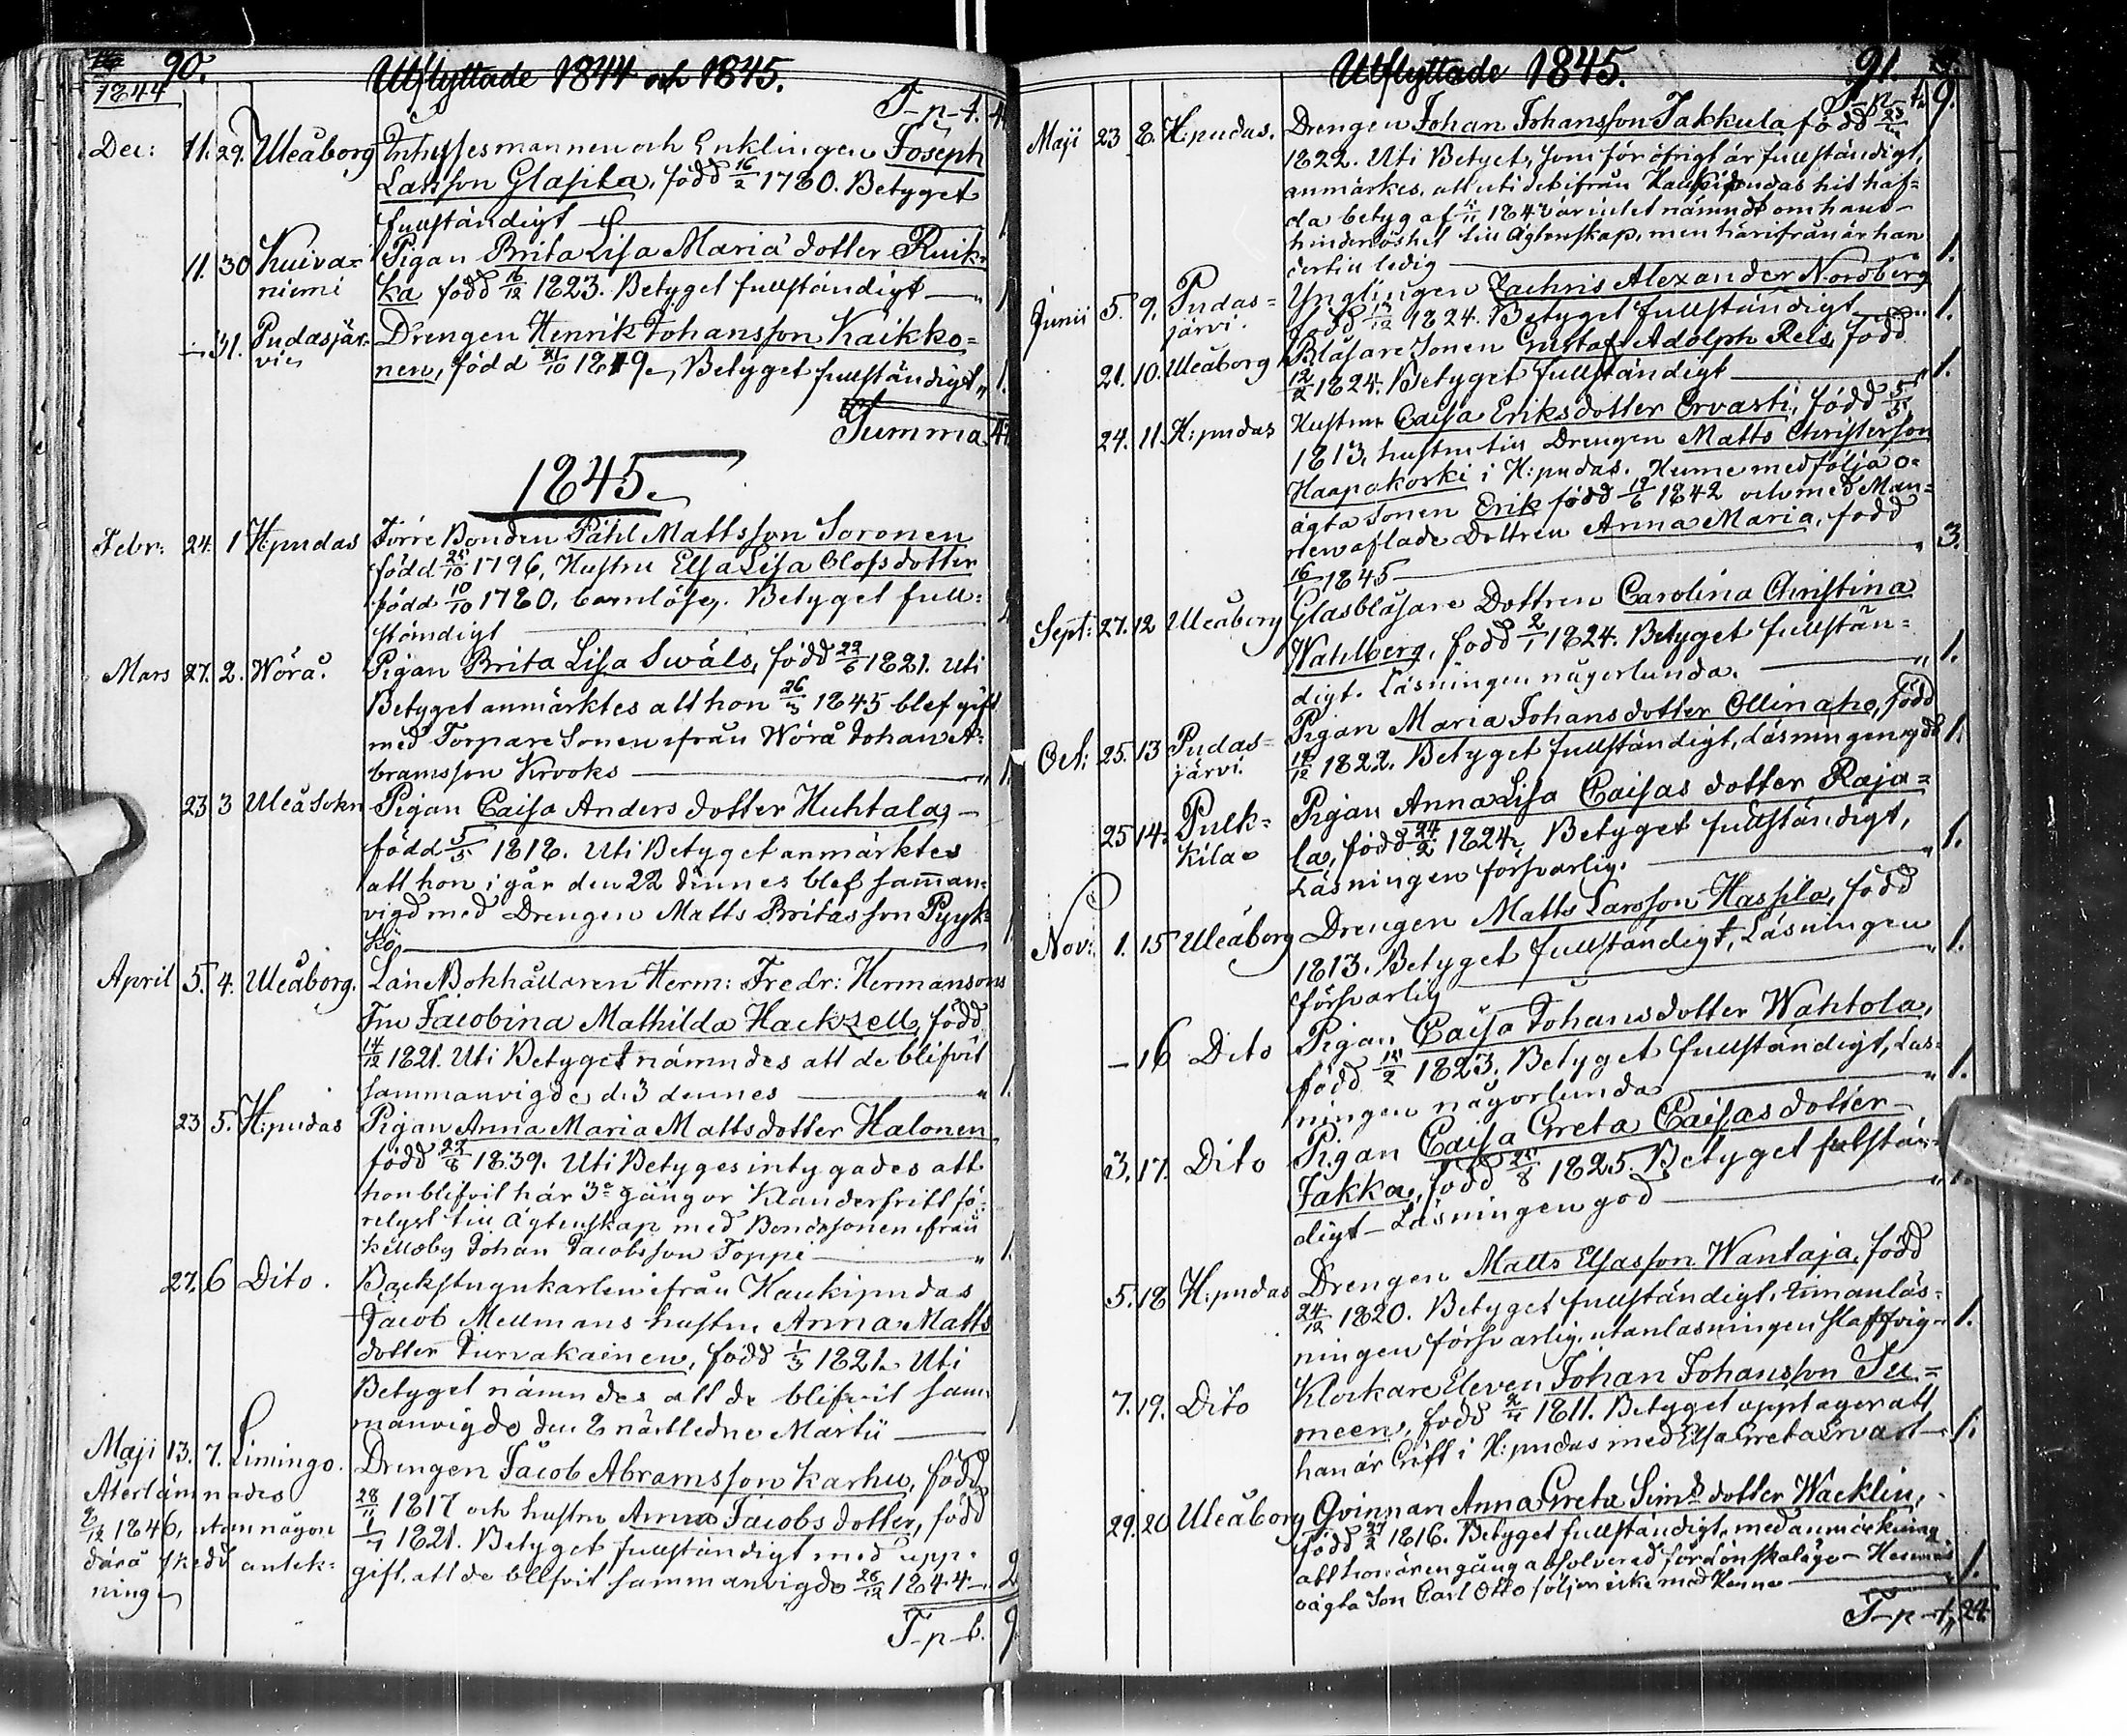 90.
Utflyttade 1844 och 1845.
1844
T-p-t.
Dec: 11. 29. Uleåborg Inhysesmannen och Enklingen Joseph
Larsson Glasila, född 16/2 1780. Betyget
fullständigt 1
11. 30 Kuiva= Pigan Brita Lisa Mariä dotter Ruik=
niemi ka född 16/12 1823. Betyget fullständigt 1
— 31. Pudasjär= Drengen Henrik Johansson Kaikko=
vi nen, född 21/10 1819. Betyget fullständigt 1.
Summa 44
1845.
Febr: 24. 1 H:pudas Förre Bonden Påhl Mattsson Soronen
född 25/10 1796, Hustru Elsa Lisa Olofsdotter
född 10/10 1780, barnlöse. Betyget full=
ständigt
Mars 27. 2. Wörå. Pigan Brita Lisa Swäls, född 22/6 1821. Uti
Betyget anmärktes att hon 26/3 1845 blef gift
med Torpare Sonen ifrån Wörå Johan A=
bramsson Krooks 1
23 3 Uleå Sokn Pigan Caisa Anders dotter Huhtala,
född 5/5 1818. Uti Betyget anmärktes
att hon i går den 22 dennes blef samman=
vigd med Drengen Matts Britasson Pyyk=
kö 1
April 5. 4. Uleåborg. Läns Bokhållaren Herm: Fredr: Hermansons
Fru Jacobina Mathilda Hacksell, född
14/12 1821. Uti Betyget nämndes att de blifvit
sammanvigde d. 3 dennes 1.
23 5. H:pudas Pigan Anna Maria Mattsdotter Halonen
född 22/8 1839. Uti Betyges intygades att
hon blifvit här 3e gångor Klanderfritt fö=
relyst till Ägtenskap med Bondesonen ifrån
Kelloby Johan Jacobsson Toppi 1.
27. 6 Dito. Backstugukarlen ifrån Haukipudas
Jacob Mellmans hustru Anna Matts
dotter Turvakainen, född 1/3 1821. Uti
Betyget nämndes att de blifvit sam=
manvigde den 2 nästledne Martii 1
Maji 13. 7. Limingo. Drengen Jacob Abramsson Karhu, född
28/11 1817 och hustru Anna Jacobs dotter, född
1/7 1821. Betyget fullständigt med upp=
gift, att de blifvit sammanvigde 26/12 1844 2
Återlämnades
2/12 1846, utan någon
därå skedd antek=
ning
T-p-t. 9
Utflyttade 1845. 91.
T-p-t. 9.
Maji 23 8. H:pudas. Drengen Johan Johansson Jakkula född
1822. Uti Betyget, som för öfrigt är fullständigt,
anmärkes, att uti det ifrån Haukipudas hit haf=
da betyg af 1843 är intet nämndt om hans
hinderlöshet till ägtenskap, men härifrån är han
dertill ledig 1.
Junii 5. 9. Pudas= Ynglingen Zachris Alexander Nordberg
järvi. född 12/12 1824. Betyget fullständigt 1.
21. 10. Uleåborg Blåsare Sonen Gustaf Adolph Reis, född
12/2 1824. Betyget fullständigt 1.
24. 11. H:pudas Hustrun Caisa Eriksdotter Ervasti, född 5/5
1813, hustru till Drengen Matts Christerson
Haapakoski i H:pudas. Henne medfölja o=
ägta Sonen Erik född 19/6 1842 och med Man=
nen aflade Dottren Anna Maria, född
16/1 1845 3.
Sept: 27. 12 Uleåborg Glasblåsare Dottren Carolina Christina
Wahlberg, född 2/1 1824. Betyget fullstän=
digt. Läsningen någerlunda. 1.
Oct: 25. 13 Pudas= Pigan Maria Johansdotter Ollinaho, född
järvi. 18/12 1822. Betyget fullständigt, Läsningen god 1.
25 14. Pulk= Pigan Anna Lisa Caisas dotter Raja=
kila la, född 24/2 1824. Betyget fullständigt,
Läsningen försvarlig. 1.
Nov: 1. 15 Uleåborg Drengen Matts Larsson Hassila, född
1813. Betyget fullständigt, Läsningen
försvarlig 1.
— 16 Dito Pigan Caisa Johansdotter Wahtola,
född 15/2 1823. Betyget fullständigt, Läs=
ningen någorlunda 1.
3. 17. Dito Pigan Caisa Greta Caisas dotter
Jakka, född 25/8 1825. Betyget fullstän=
digt — Läsningen god 1.
5. 18 H:pudas Drengen Matts Elsasson Wantaja, född
24/12 1820. Betyget fullständigt, innanläs=
ningen försvarlig, utanläsningen slaffvig 1.
7. 19. Dito Klockare Eleven Johan Johansson Tu=
meen, född 2/4 1811. Betyget upptager att
han är Gift i H:pudas med Elsa Greta Ervast 1.
29. 20 Uleåborg Qvinnan Anna Greta Sims dotter Wacklin,
född 27/2 1816. Betyget fullständigt, med anmärkning
att hon är en gång absolverad för lönskaläge — Hennes
oägta Son Carl Otto följer icke med Henne 1.
T-p-t. 24